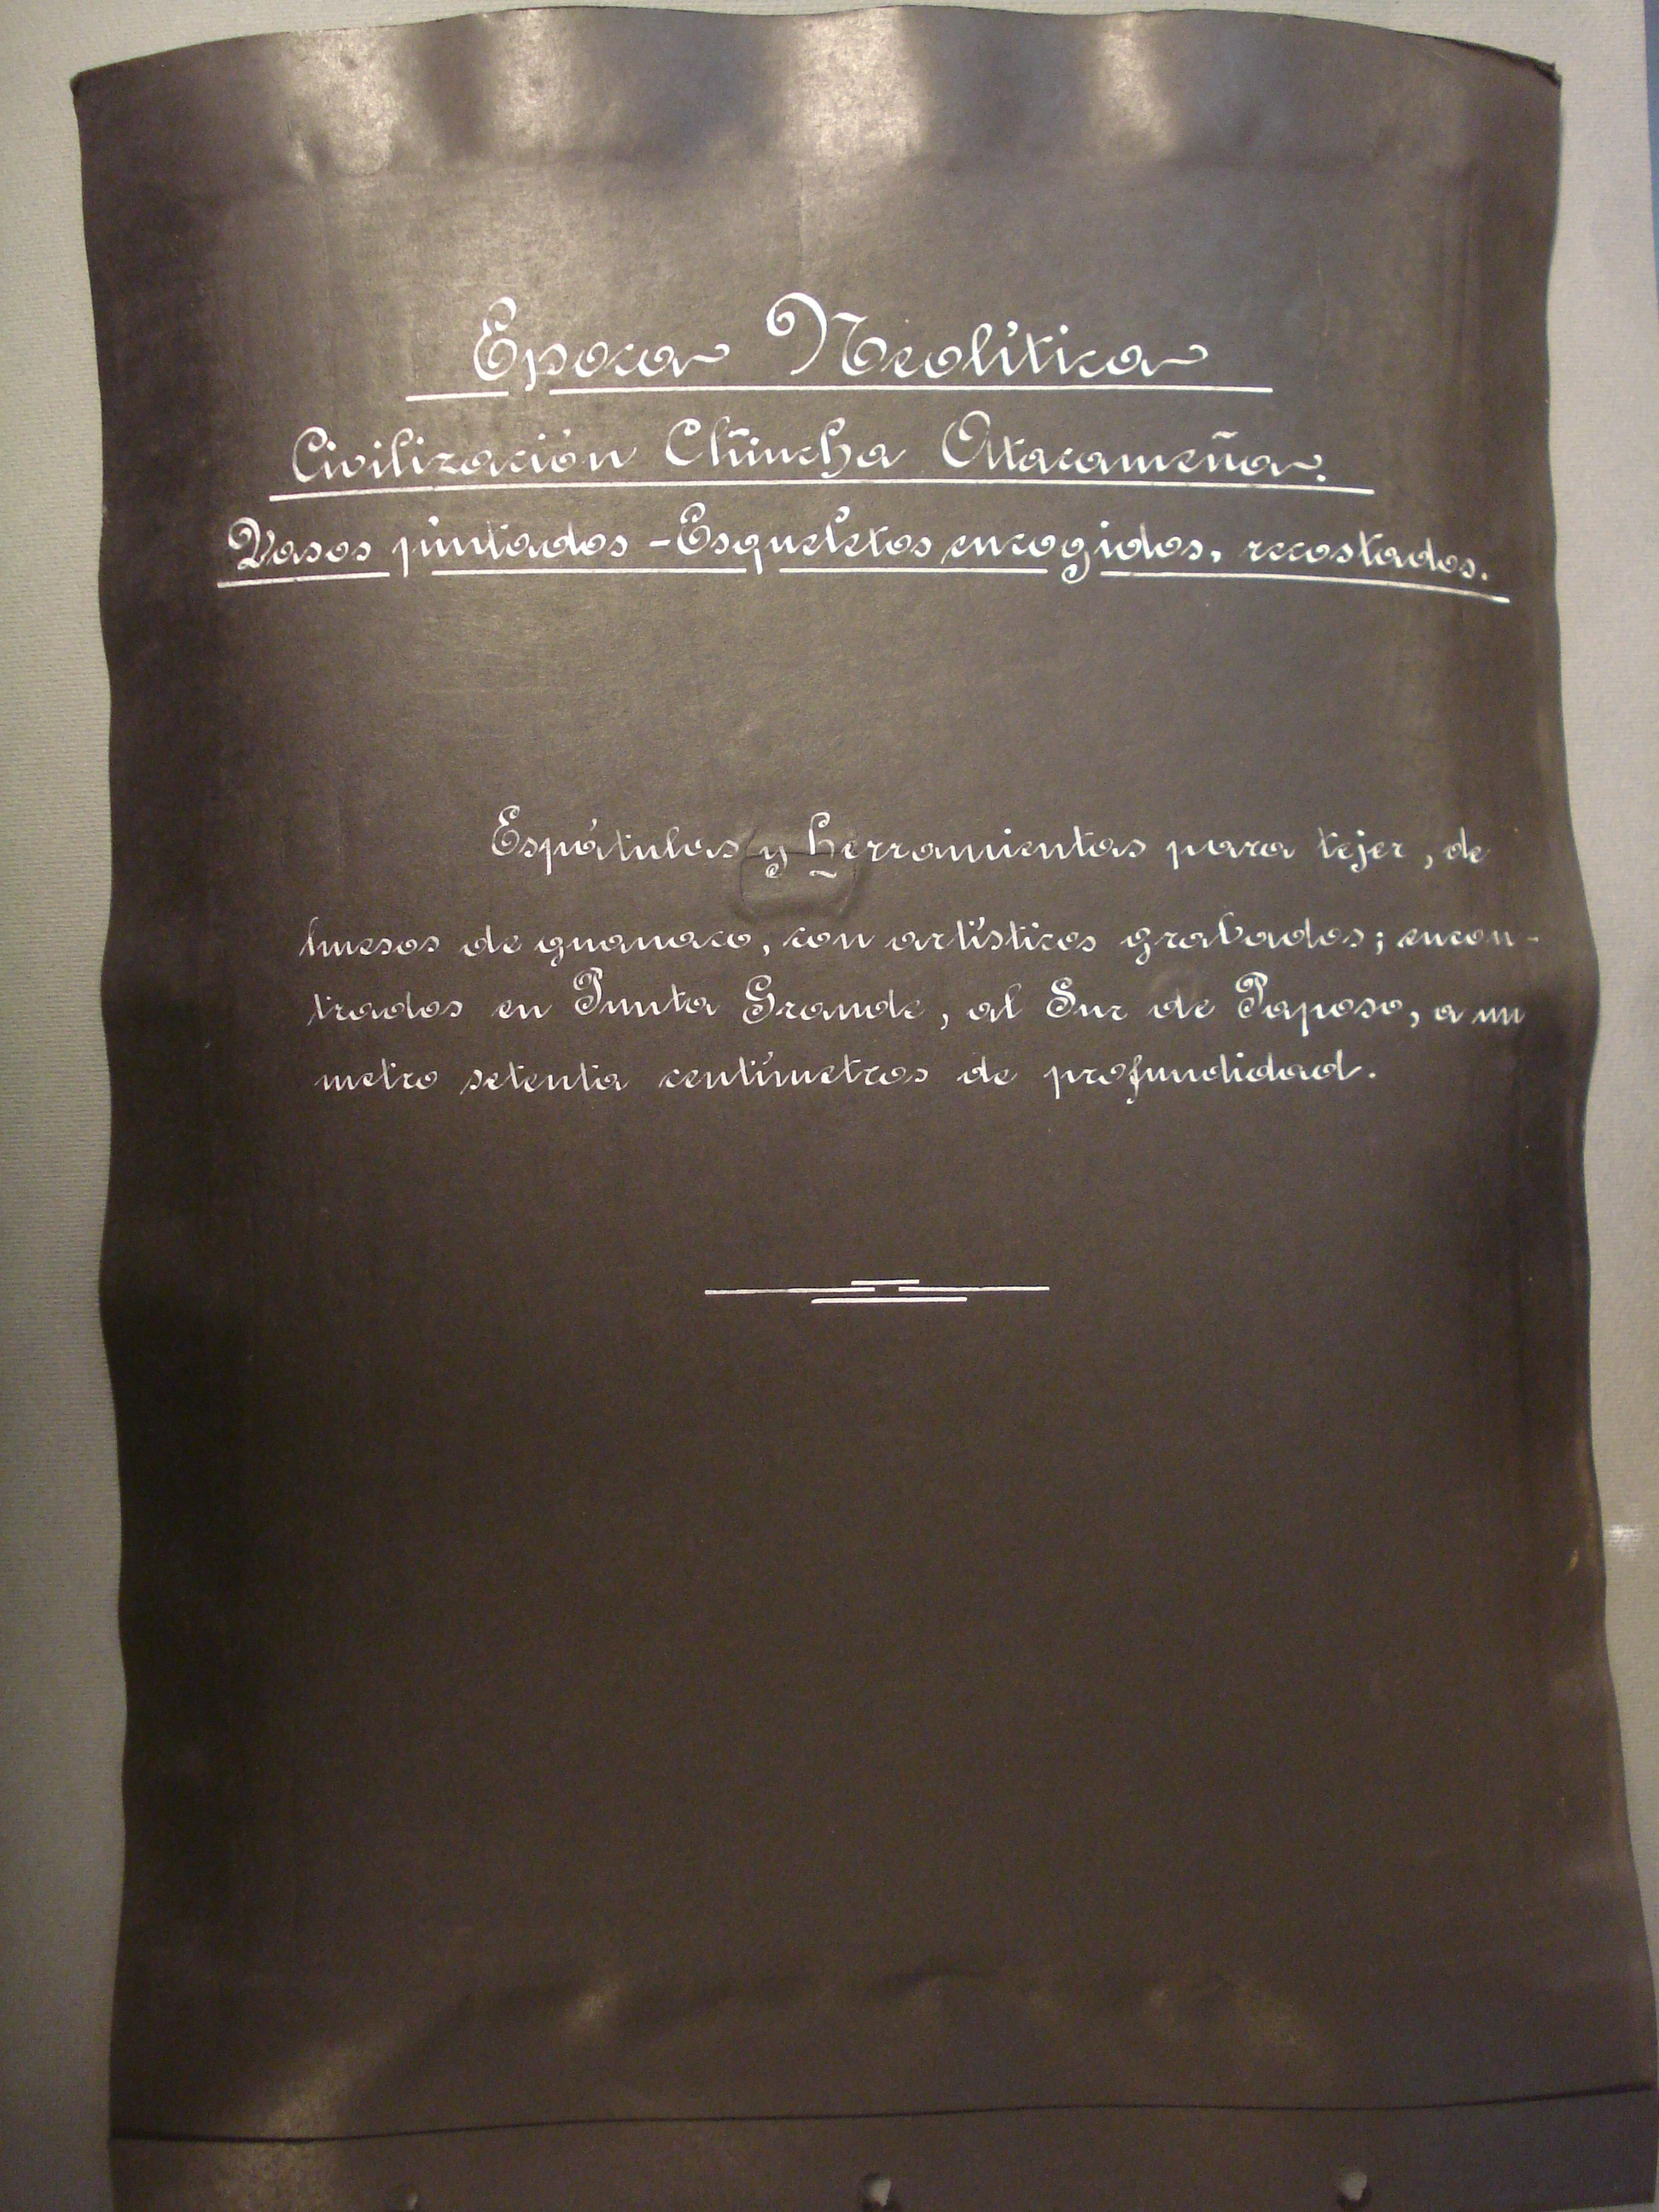 Epoca Neolítica
Civilización Chincha Atacameña.
Vasos pintados - Esqueletos encogidos, recostados.
Espátulas y herramientas para tejer, de
huesos de guanaco, con artísticos grabados; encon-
trados en Punta Grande, al Sur de Paposo, a un
metro setenta centímetros de profundidad.